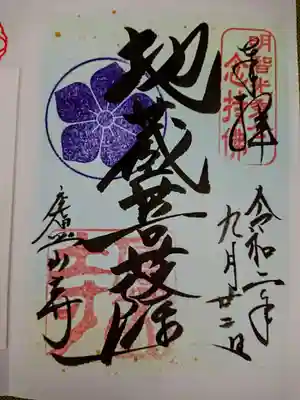 奉拝
明智光秀
念持佛
令和二年
九月廿二日
地蔵菩薩
廬山寺